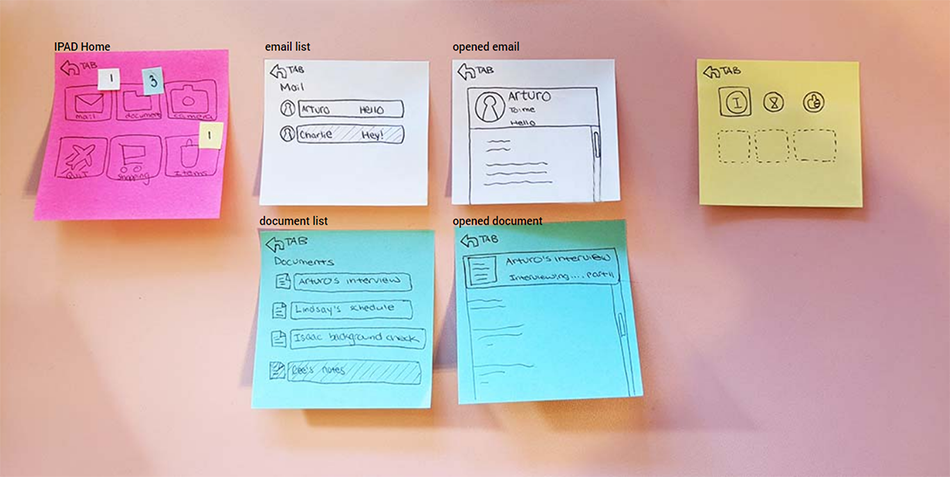 IPAD Home
TAB
1
3
mail
document
camera
1
QUIT
Shopping
Items
email list
TAB
Mail
Arturo Hello
Charlie Hey!
opened email
TAB
Arturo
To: me
Hello
TAB
I
document list
TAB
Documents
Arturo's interview
Lindsay's schedule
Isaac background check
Bee's notes
opened document
TAB
Arturo's interview
Interviewing.... part II